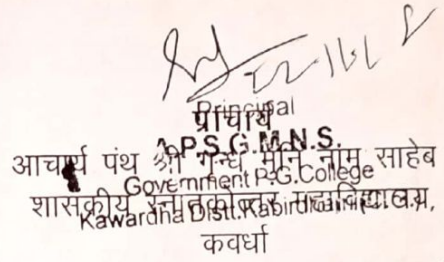 प्राचार्य
Principal
A.P.S.G.M.N.S.
आचार्य पंथ श्री गृन्ध मुनि नाम साहेब
Government P.G.College
शासकीय स्नातकोत्तर महाविद्यालय,
Kawardha Distt.Kabirdham
कवर्धा